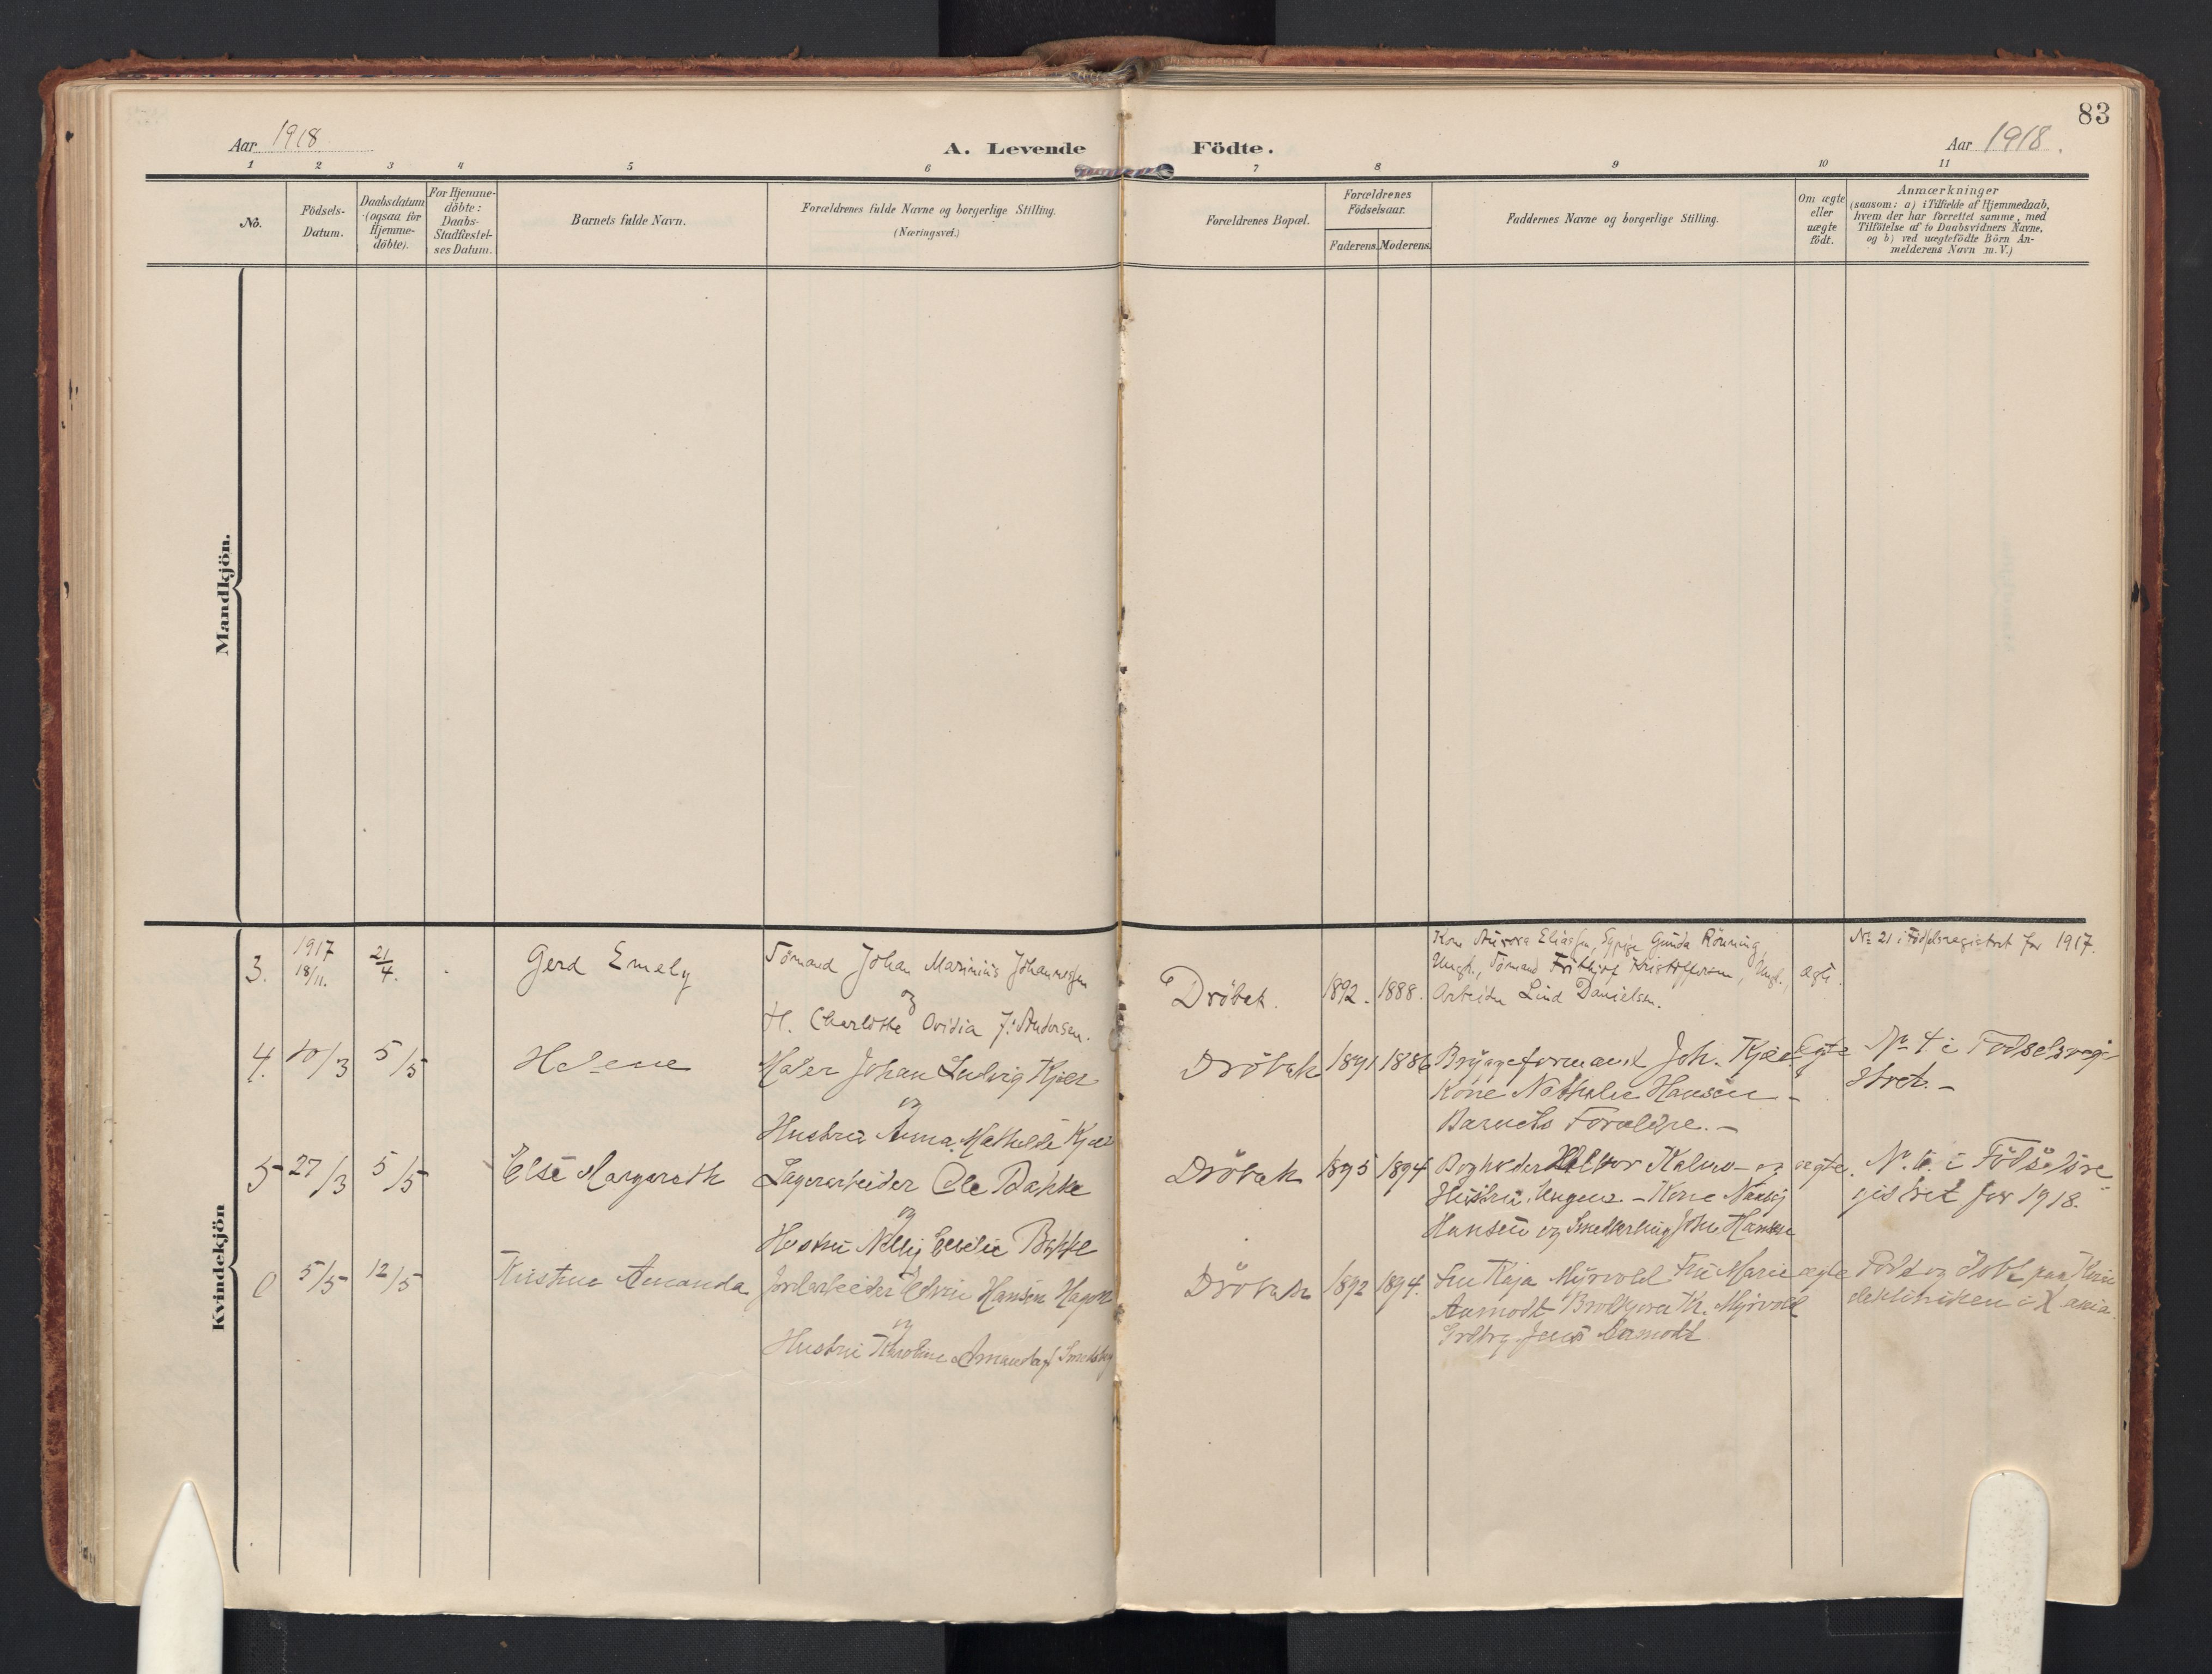 83
Aar 1918
A. Levende Födte.
Aar 1918.
1 2 3 4 5 6 7 8 9 10 11
No.
Födsels-
Datum.
Daabsdatum
(ogsaa for
Hjemme-
döbte).
For Hjemme-
döbte:
Daabs-
Stadfæstel-
ses Datum.
Barnets fulde Navn.
Forældrenes fulde Navne og borgerlige Stilling.
(Næringsvei.)
Forældrenes Bopæl.
Forældrenes
Födselsaar.
Faderens. Moderens.
Faddernes Navne og borgerlige Stilling.
Om ægte
eller
uægte
födt.
Anmærkninger
(saasom: a) i Tilfælde af Hjemmedaab,
hvem der har forrettet samme, med
Tilföielse af to Daabsvidners Navne,
og b) ved uægtefödte Börn An-
melderens Navn m. V.)
Mandkjön.
Kvindekjön
3.
1917
18/11.
21/4.
Gerd Emely
Sömand Johan Marinius Johannesen
og
H. Charlotte Ovidia f. Andersen.
Dröbak.
1892. 1888.
Kone Aurora Eliassen, Sypige Gunda Rönning,
Ungk., Sömand Frithjof Kristoffersen, Ungk.,
Arbeider Lind Danielsen.
ægte.
No 21 i Födselsregistret for 1917.
4. 10/3 5/5
Helene
Maler Johan Ludvig Kjær
og
Hustru Anna Mathilde Kjær
Dröbak 1891 1886
Bryggeformand Joh. Kjær
Kone Nathalie Hansen -
Barnets Forældre. -
Ægte
No 4 i Födselsregi-
stret. -
5 27/3 5/5
Else Margareth
Lagerarbeider Ole Bakke
og
Hustru Nelly Cecilie Bakke
Dröbak 1895 1894
Bogholder Halvor Kalmo - og
Hustru - Kone Nanny
Hansen og Smedlærling John Hansen
ægte.
No. 6. i Födselsre-
gistret for 1918.
0 5/5 12/5
Kristine Amanda
Jordarbeider Edvin Hansen
og
Hustru Karoline Amanda f.
Dröbak 1892 1894.
Fru Kaja Myrvold Fru Marie
Aamodt Kr. Myrvold
Jens Aamodt
ægte
Födt og döbt paa Kvin-
deklinikken i X ania.